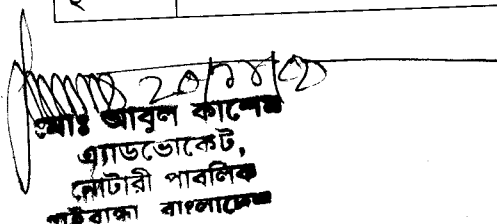 মোঃ আবুল কালেম
এ্যাডভোকেট,
নোটারী পাবলিক
গাইবান্ধা বাংলাদেশ